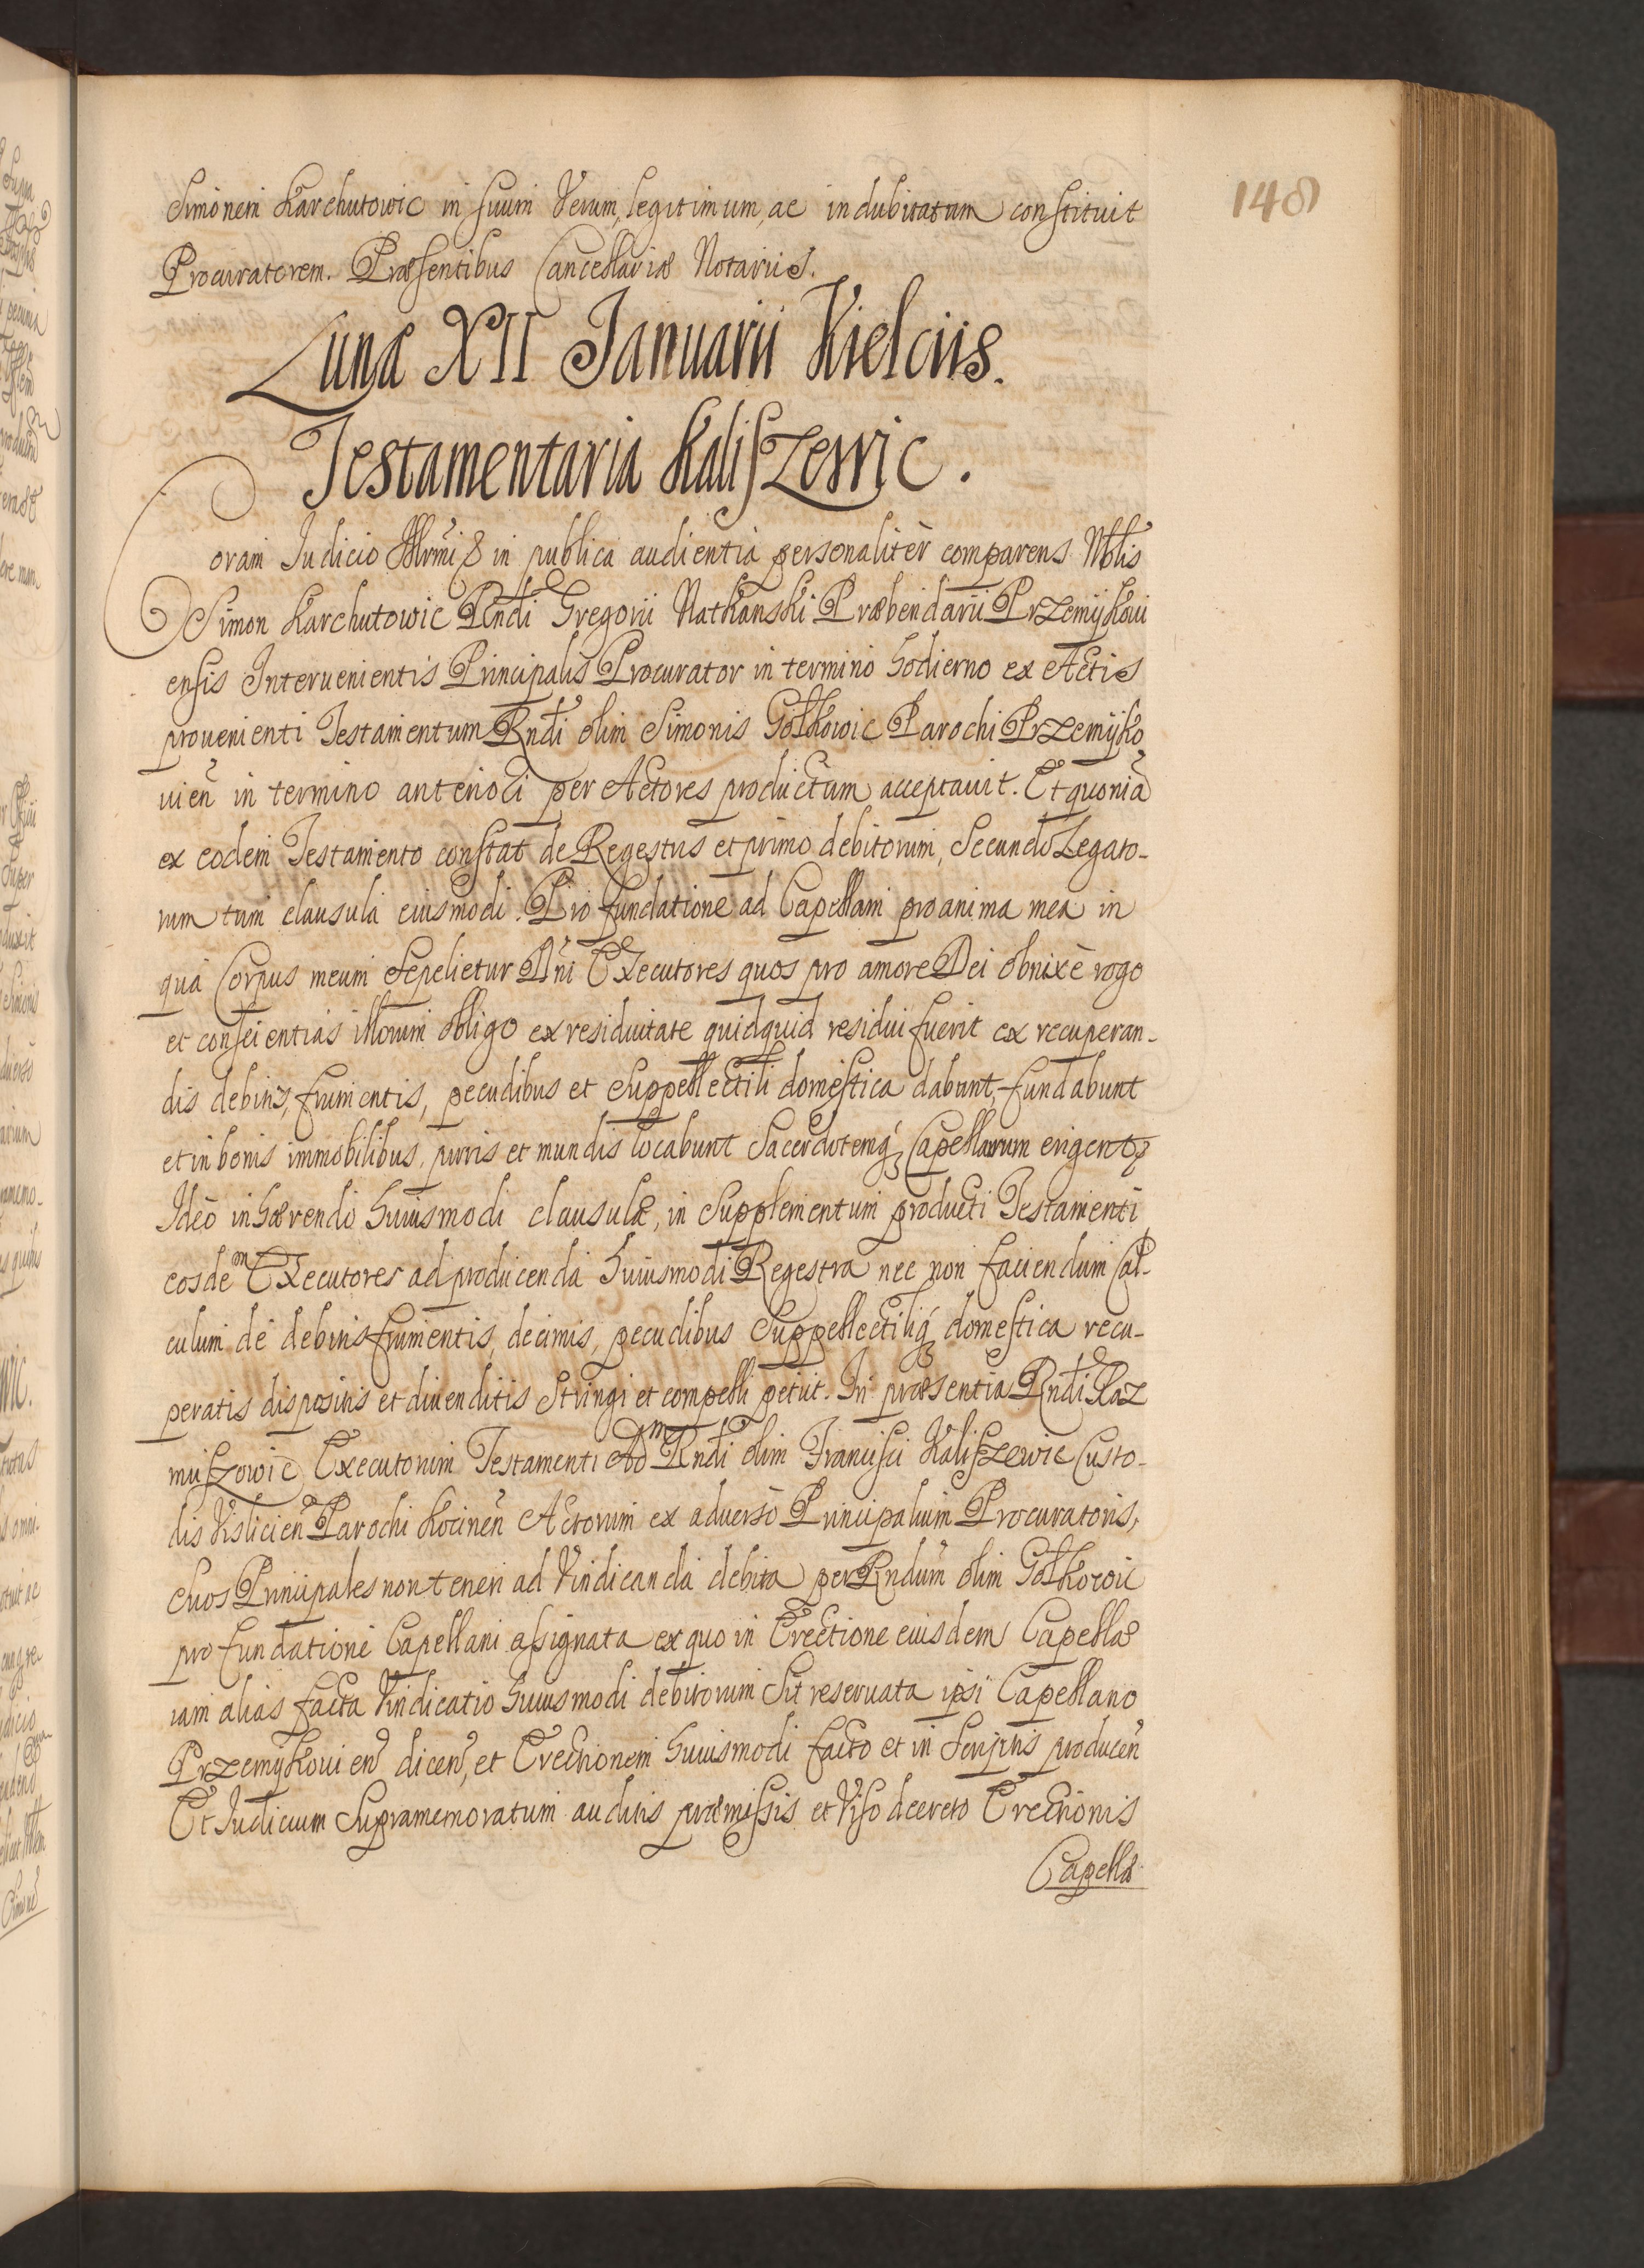 148
Simonem Karchutowic in suum Verum, legitimum, ac indubitatum constituit
Procuratorem. Præsentibus Cancellariæ Notariis.
Lunæ XII Januarii Kielciis.
Testamentaria Kaliszewic.
Coram Judicio Illrmi & in publica audientia personalitèr comparens Nblis
Simon Karchutowic Rndi Gregorii Natkanski Præbendarii Przemijkoui
ensis Interuenientis Principalis Procurator in termino hodierno ex Actis
prouenienti Testamentum Rndi olim Simonis Gołkowic Parochi Przemijko
uien in termino anteriori per Actores productum acceptauit. Et quoniã
ex eodem Testamento constat de Regestris et primo debitorum, Secundò Legato-
rum tum clausula eiusmodi. Pro fundatione ad Capellam pro anima mea in
qua Corpus meum Sepelietur Dni Executores quos pro amore Dei obnixè rogo
et conscientias illorum obligo ex residuitate quidquid residui fuerit ex recuperan-
dis debitis, frumentis, pecudibus et Suppellectili domestica dabunt, fundabunt
et in bonis immobilibus, puris et mundis locabunt Sacerdotemq; Capellanum erigent
Ideò inhærendo huiusmodi clausulæ, in Supplementum producti Testamenti
eosdem Executores ad producenda huiusmodi Regestra nec non faciendum Cal-
culum de debitis frumentis, decimis, pecudibus Suppellectiliq; domestica recu-
peratis dispositis et diuenditis Stringi et compelli petiit. In præsentia Rndi Kaz
miszowic Executorum Testamenti Adm Rndi olim Francisci Kaliszewic Custo-
dis Vislicien Parochi Kocinen Actorum ex aduerso Principalium Procuratoris,
Suos Principales non teneri ad Vindicanda debita per Rndum olim Gołkowic
pro fundatione Capellani assignata ex quo in Erectione eiusdem Capellæ
iam alias facta Vindicatio huiusmodi debitorum Sit reseruata ipsi Capellano
Przemykouien dicen, et Erectionem huiusmodi facto et in Scriptis producen
Et Judicium Supramemoratum auditis præmissis et Viso decreto Erectionis
Capellæ